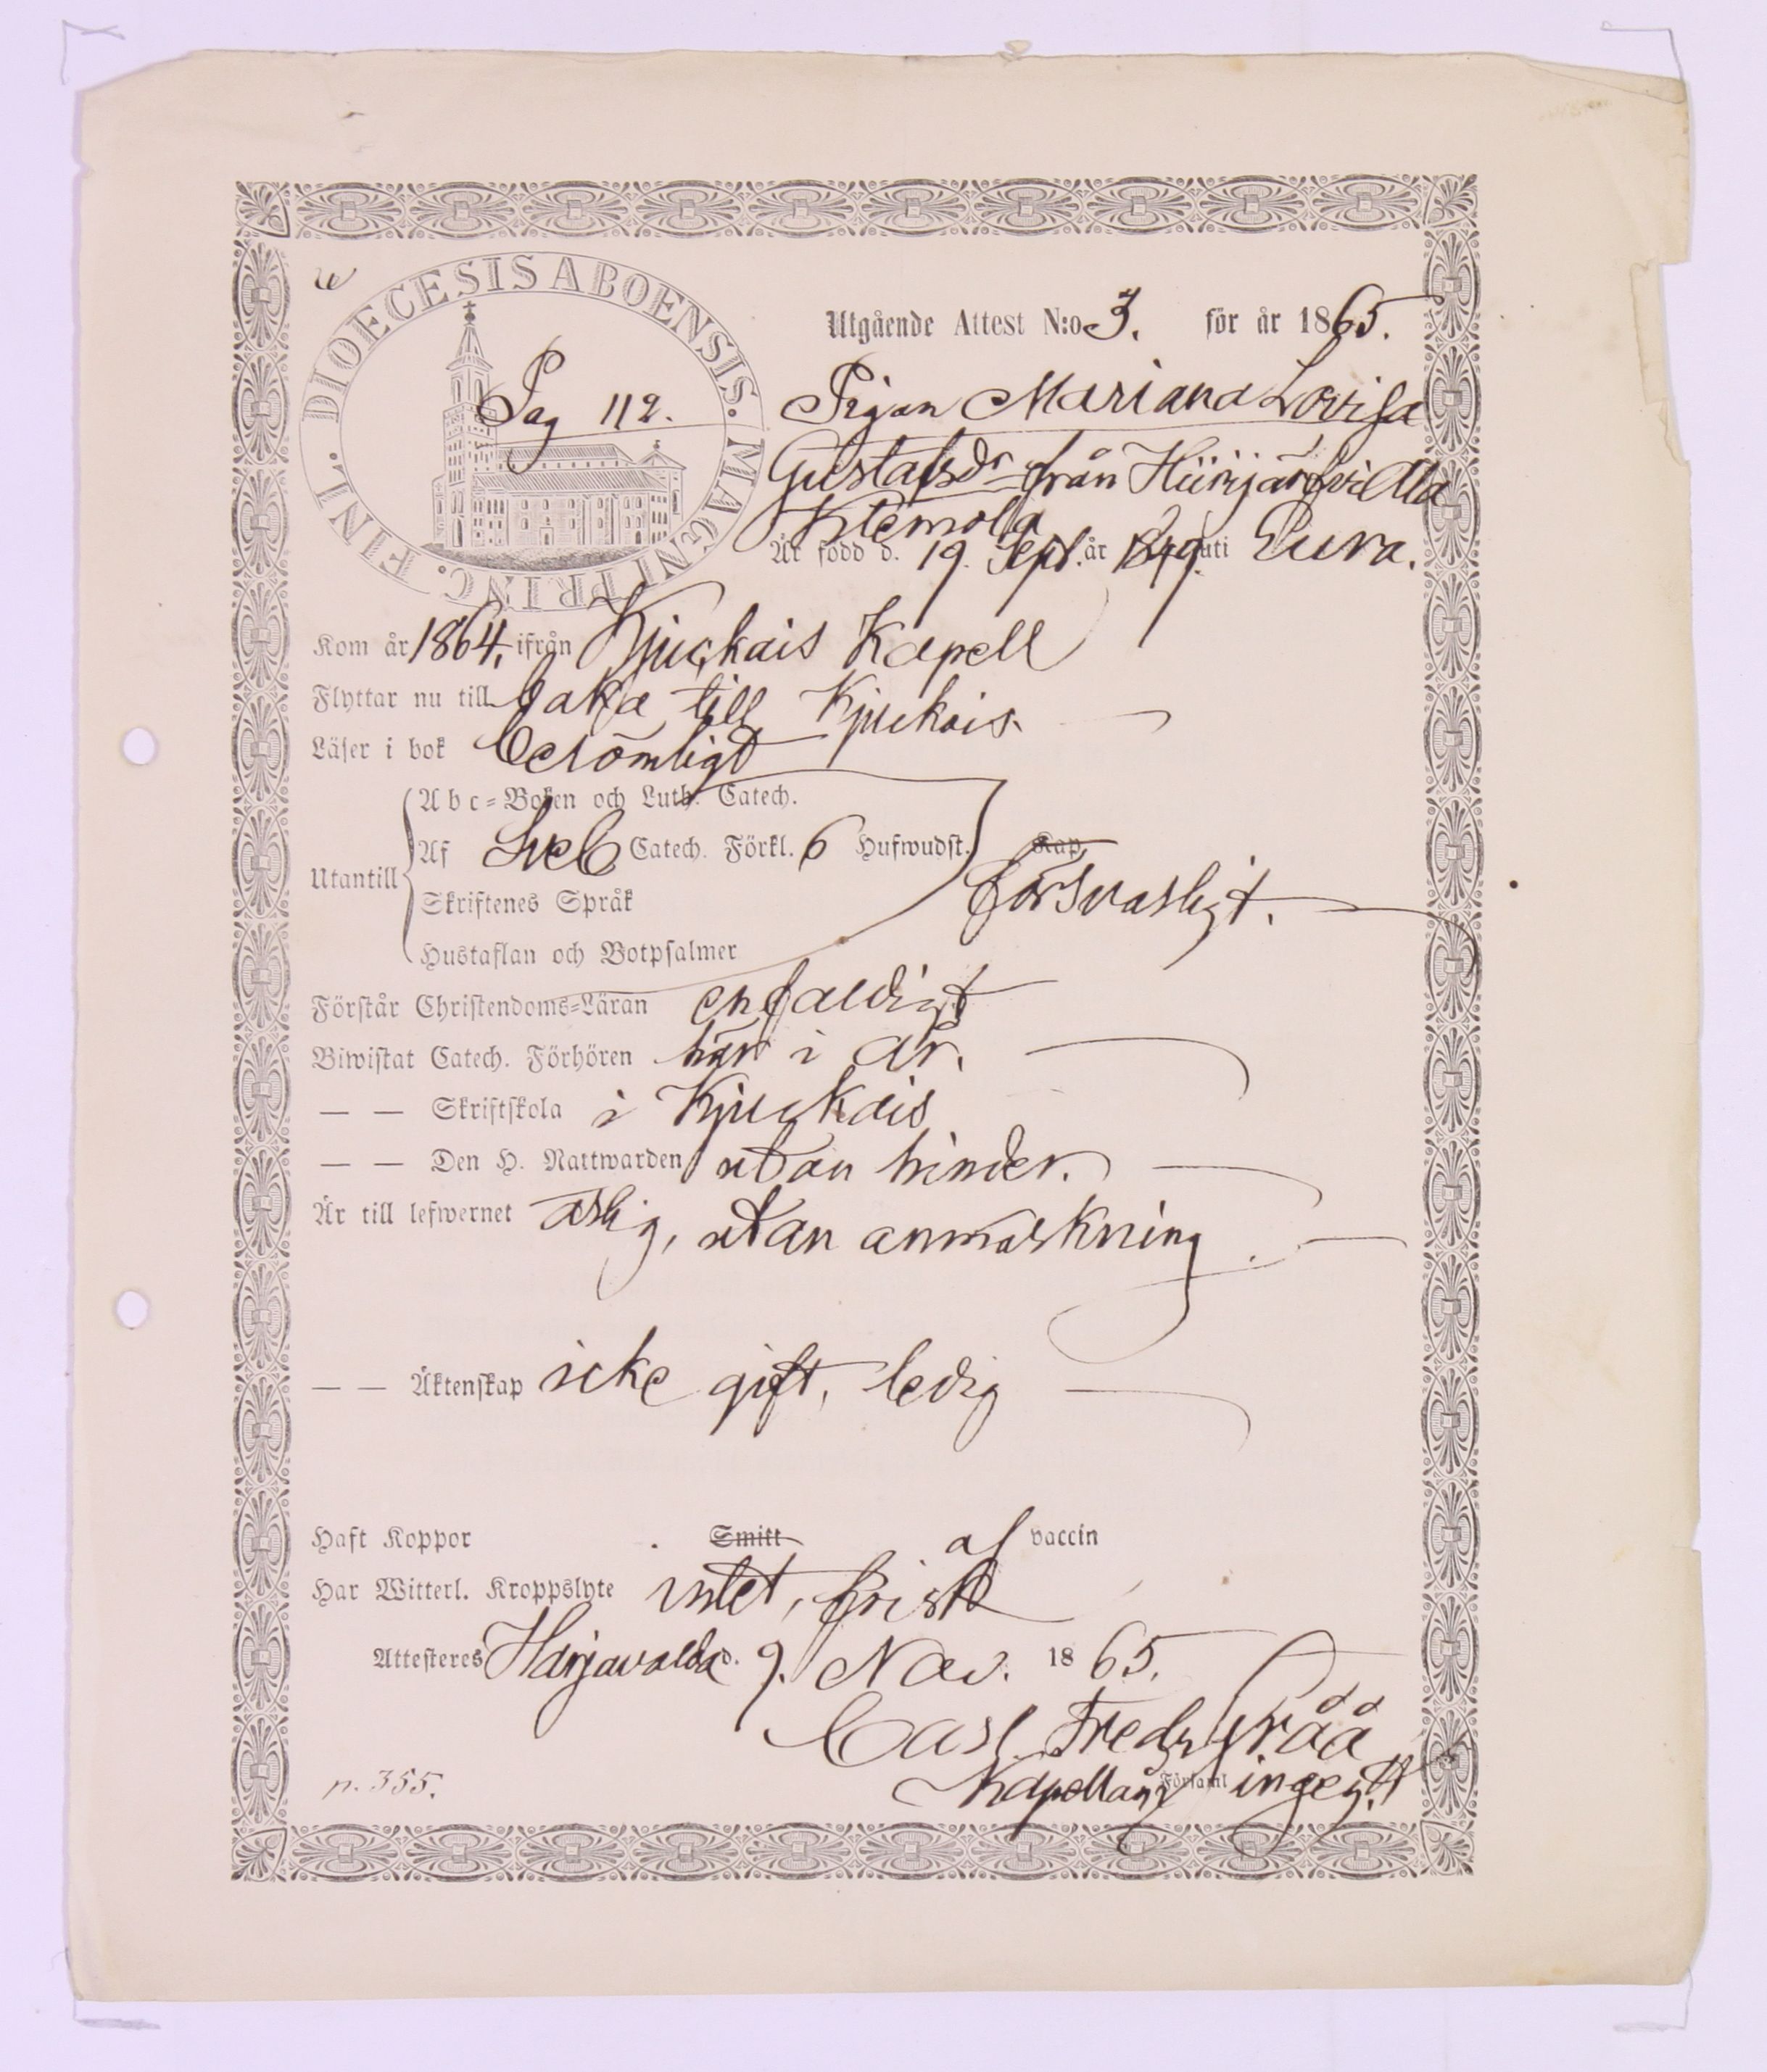 DIOECESIS ABOENSIS. MAGNI PRINC. FINL.
Pag 112.
Utgående Attest N:o 3. för år 1865.
Pigan Mariana Lovisa
Gustafsdr från Hiirijärfvi Ala
Klemola
Är född d. 19. Sept. år 1849. uti Eura.
Kom år 1864. ifrån Kjuckais Kapell
Flyttar nu till baka till Kjuckais.
Läser i bok berömligt
Abc-Boken och Luth. Catech.
Af Sveb Catech. Förkl. 6 Hufwudst. Kap.
Utantill
försvarligt.
Skriftenes Språk
Hustaflan och Botpsalmer
Förstår Christendoms-Läran enfaldigt
Biwistat Catech. Förhören här i år.
— — Skriftskola i Kjuckais
— — Den H. Nattwarden utan hinder.
Är till lefwernet ärlig, utan anmärkning.
— — Äktenskap icke gift, ledig
Haft Koppor Smitt af vaccin
Har Witterl. Kroppslyte intet, frisk
Attesteras Harjavalda d. 9. Nov. 1865.
Carl Fredr
Kapellan i Församl
n. 355.